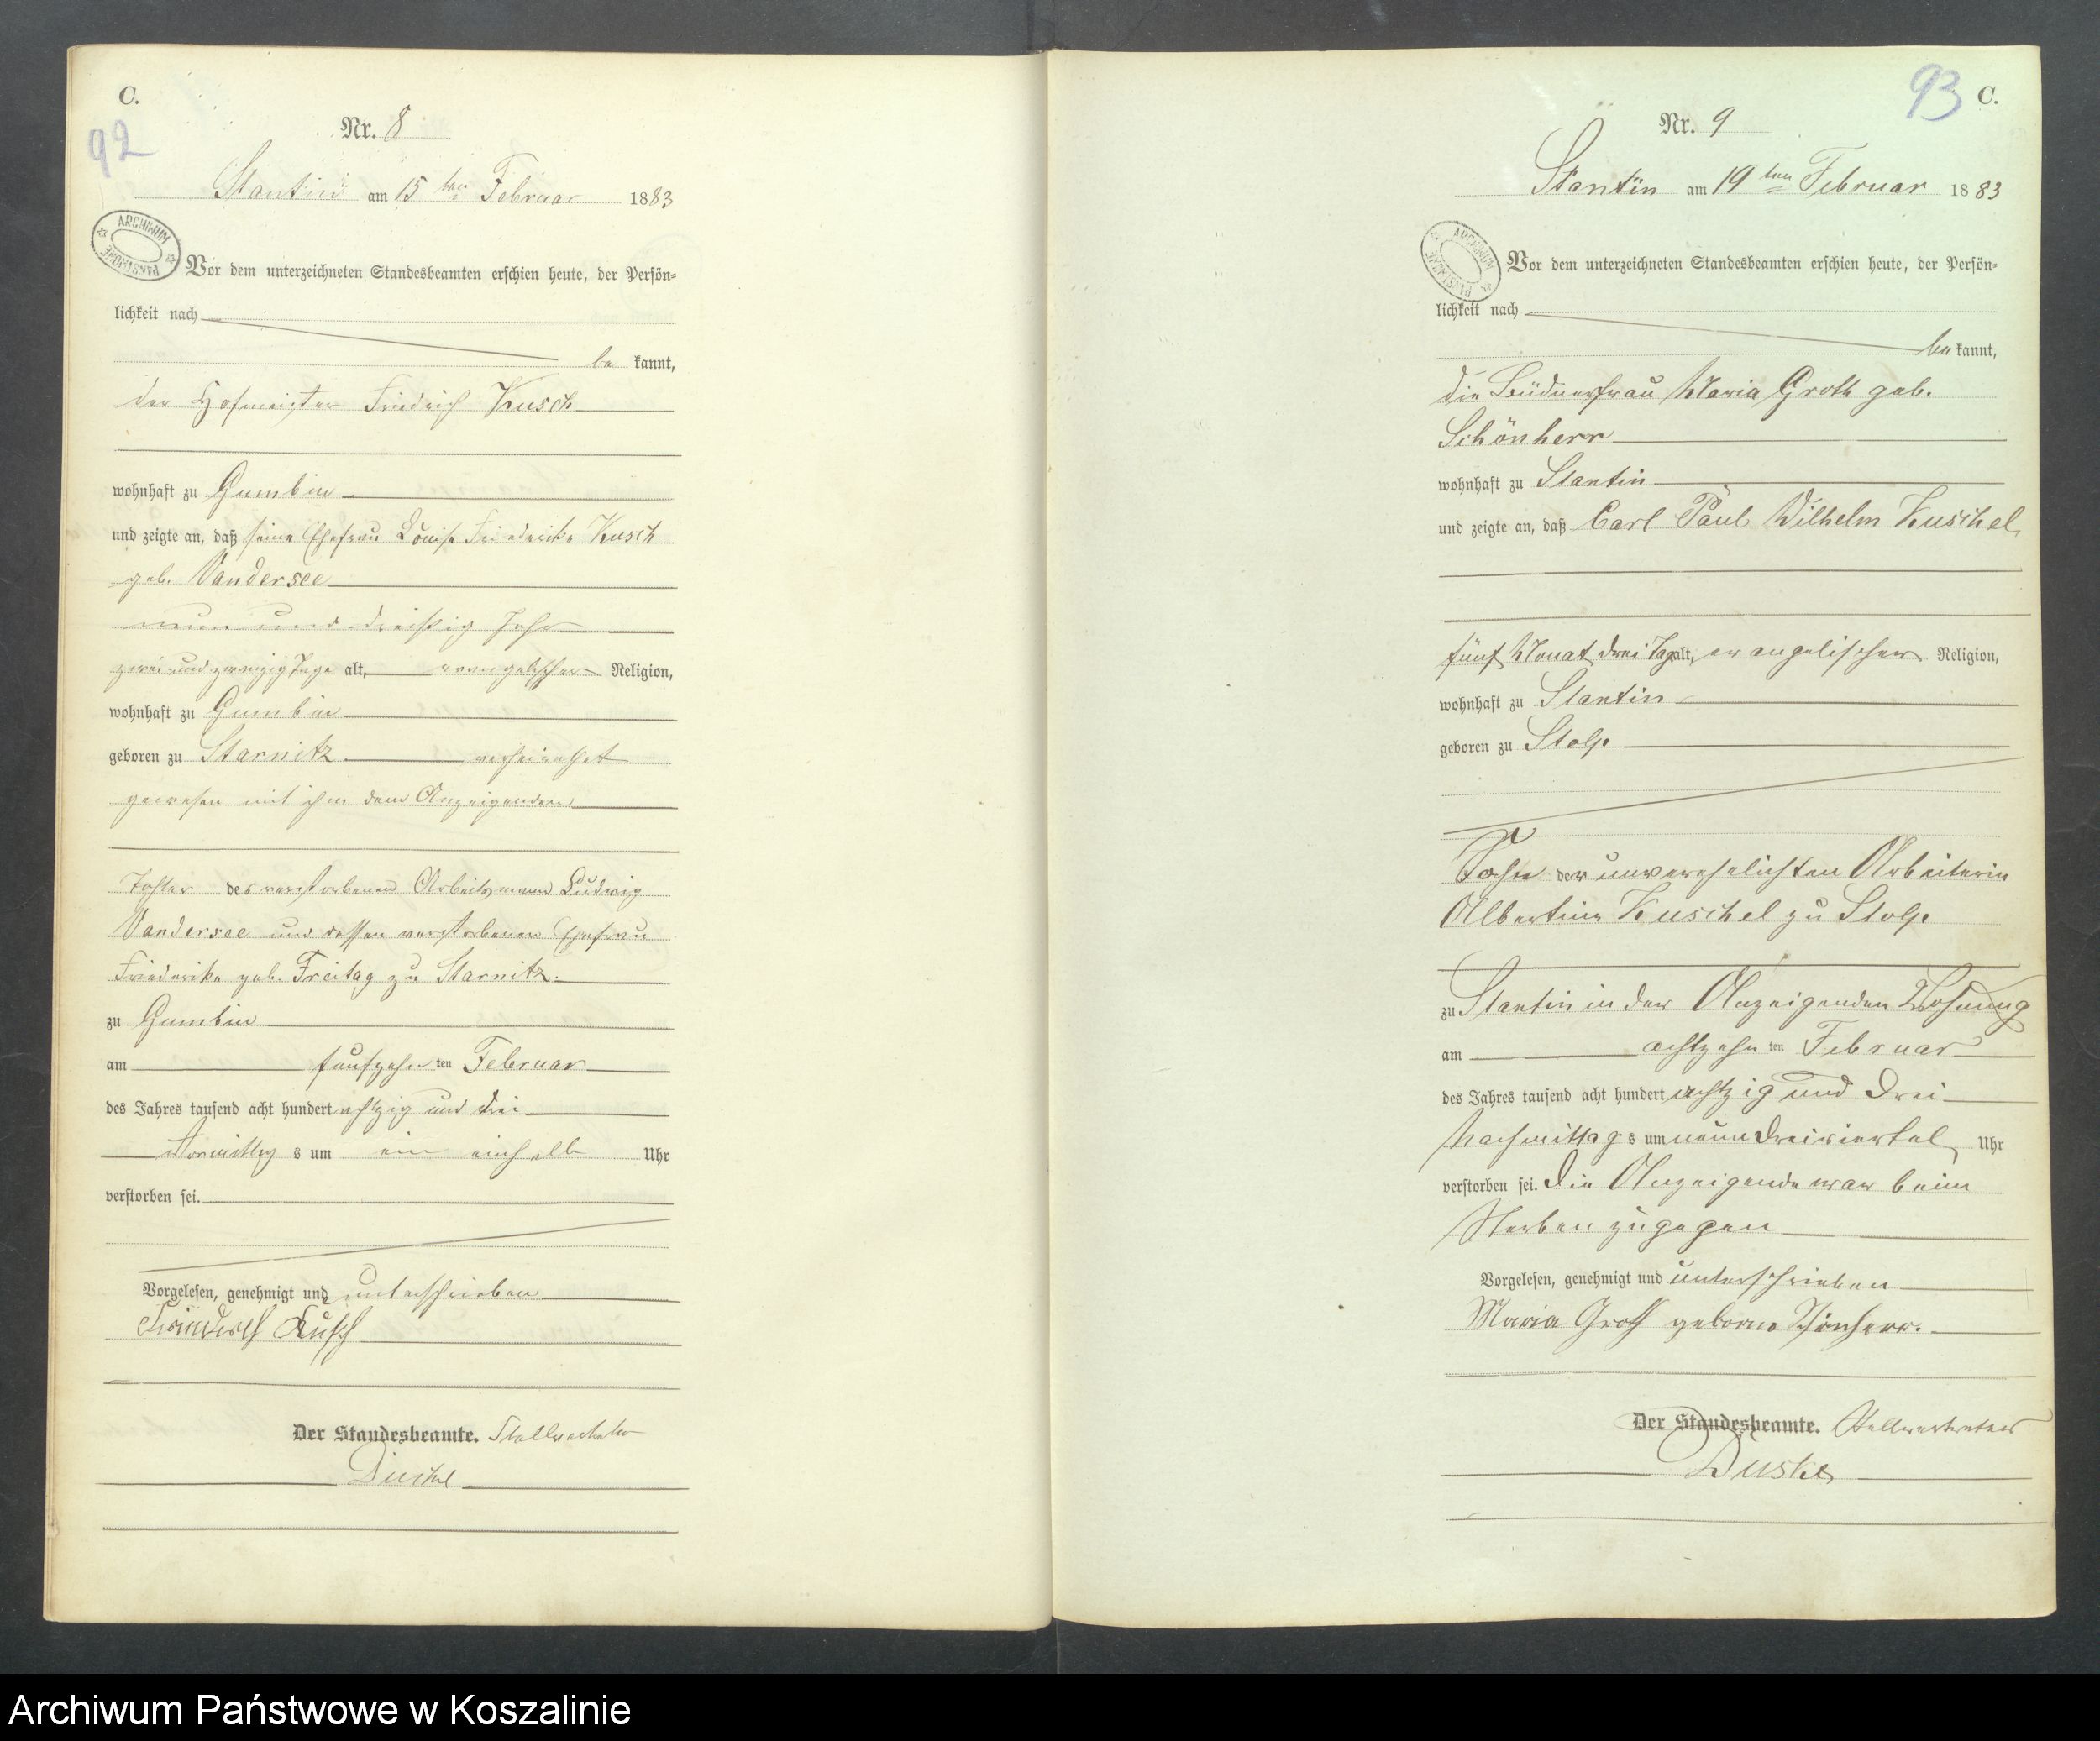 C.
92
Nr. 8
Stantin am 15 ten Februar 1883
ARCHIWUM PAŃSTWOWE
Vor dem unterzeichneten Standesbeamten erschien heute, der Persön-
lichkeit nach
be kannt,
der Hofmeister Friedrich Kusch
wohnhaft zu Gumbin
und zeigte an, daß seine Ehefrau Louise Friederike Kusch
geb. Vandersee
neun und dreißig Jahr
zwei und zwanzig Tage alt, evangelischer Religion,
wohnhaft zu Gumbin
geboren zu Starnitz verheirathet
gewesen mit ihm dem Anzeigenden
Tochter des verstorbenen Arbeitsmann Ludwig
Vandersee und dessen verstorbenen Ehefrau
Friederike geb. Freitag zu Starnitz.
zu Gumbin
am fünfzehn ten Februar
des Jahres tausend acht hundert achtzig und drei
Vormittag s um ein einhalb Uhr
verstorben sei.
Vorgelesen, genehmigt und unterschrieben
Friedrich Kusch
Der Standesbeamte. Stellvertreter
93
C.
Nr. 9
Stantin am 19 ten Februar 1883
ARCHIWUM PAŃSTWOWE
Vor dem unterzeichneten Standesbeamten erschien heute, der Persön-
lichkeit nach
be kannt,
die Büdnerfrau Maria Groth geb.
Schönherr
wohnhaft zu Stantin
und zeigte an, daß Carl Paul Wilhelm Kuschel
fünf Monat, drei Tage alt, evangelischer Religion,
wohnhaft zu Stantin
geboren zu Stolp
Sohn der unverehelichten Arbeiterin
Albertine Kuschel zu Stolp
zu Stantin in der Anzeigenden Wohnung
am achtzehn ten Februar
des Jahres tausend acht hundert achtzig und drei
Nachmittag s um neun dreiviertel Uhr
verstorben sei. Die Anzeigende war beim
Sterben zugegen
Vorgelesen, genehmigt und unterschrieben
Maria Groth geborne Schönherr.
Der Standesbeamte. Stellvertreter
Archiwum Państwowe w Koszalinie